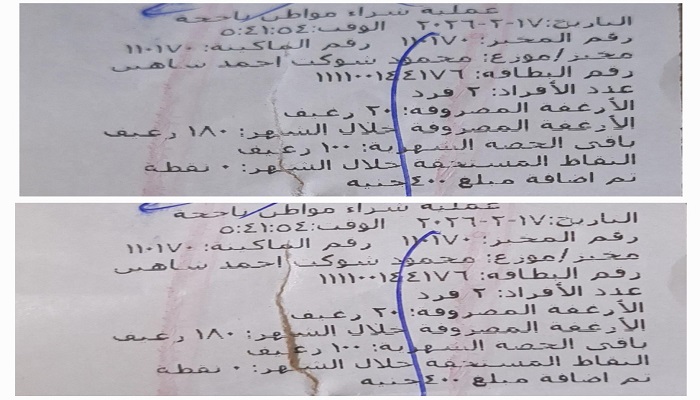 عملية شراء مواطن ناجحة
التاريخ: ١٧-٢-٢٠٢٦ الوقت: ٥:٤١:٥٤
رقم المخبز: ١١٠١٧٠ رقم الماكينة: ١١٠١٧٠
مخبز/موزع: محمود شوكت احمد شاهين
رقم البطاقة: ١١١١٠٠١٤٤١٧٦
عدد الأفراد: ٢ فرد
الأرغفة المصروفة: ٢٠ رغيف
الأرغفة المصروفة خلال الشهر: ١٨٠ رغيف
باقى الحصة الشهرية: ١٠٠ رغيف
النقاط المستحقة خلال الشهر: ٠ نقطة
تم اضافة مبلغ ٤٠٠جنيه
عملية شراء مواطن ناجحة
التاريخ: ١٧-٢-٢٠٢٦ الوقت: ٥:٤١:٥٤
رقم المخبز: ١١٠١٧٠ رقم الماكينة: ١١٠١٧٠
مخبز/موزع: محمود شوكت احمد شاهين
رقم البطاقة: ١١١١٠٠١٤٤١٧٦
عدد الأفراد: ٢ فرد
الأرغفة المصروفة: ٢٠ رغيف
الأرغفة المصروفة خلال الشهر: ١٨٠ رغيف
باقى الحصة الشهرية: ١٠٠ رغيف
النقاط المستحقة خلال الشهر: ٠ نقطة
تم اضافة مبلغ ٤٠٠جنيه